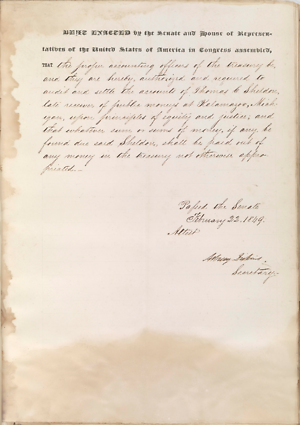 BE IT ENACTED by the Senate and House of Represen-
tatives of the United States of America in Congress assembled,
THAT the proper accounting officers of the treasury be,
and they are hereby, authorized and required to
audit and settle the accounts of Thomas C. Sheldon,
late receiver of public moneys at Kalamazoo, Mich-
igan, upon principles of equity and justice; and
that whatever sum or sums of money, if any, be
found due said Sheldon, shall be paid out of
any money in the treasury not otherwise appro-
priated.
Passed the Senate
February 22. 1849.
Attest
Secretary.